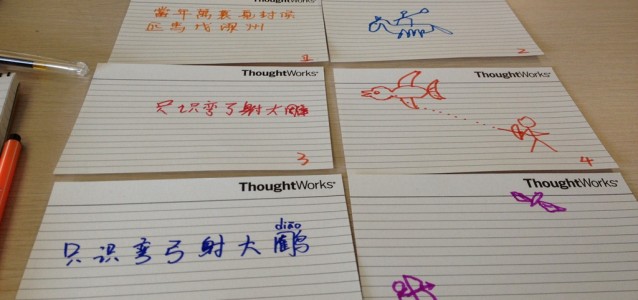 當年萬裏覓封候
匹馬戍梁州
1
2
ThoughtWorks®
只识弯弓射大雕
3
ThoughtWorks®
4
ThoughtWorks®
diāo
只识弯弓射大鵰
ThoughtWorks®